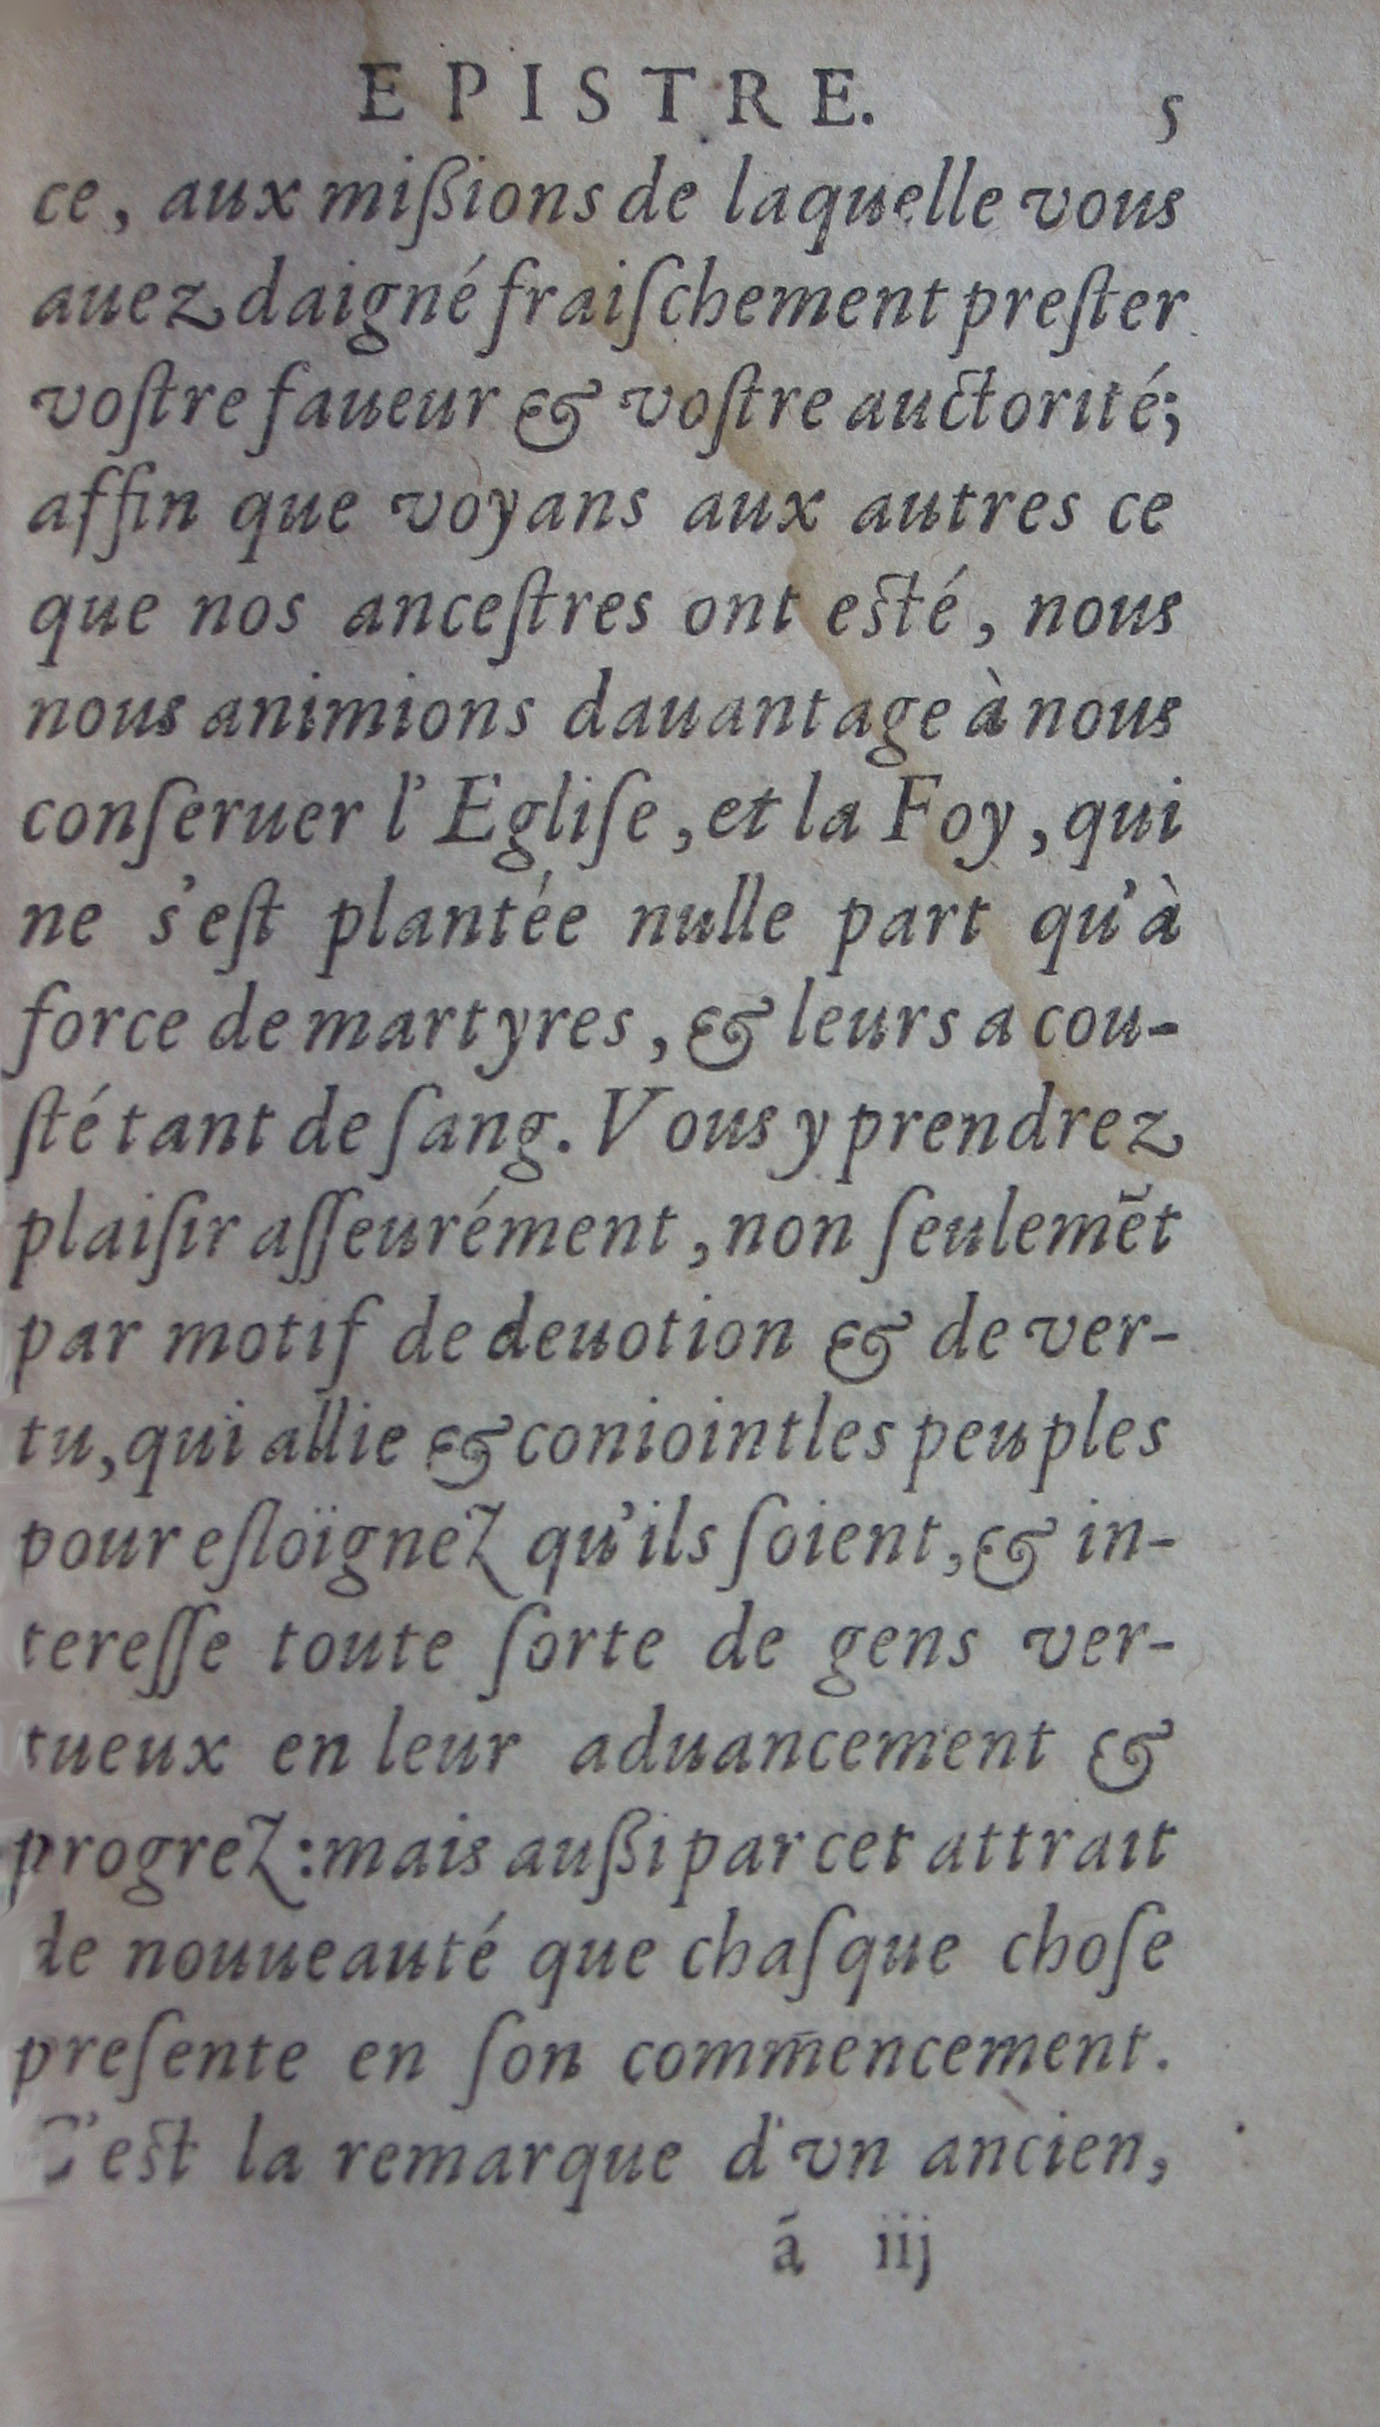 EPISTRE. 5
ce, aux mißions de laquelle vous
auez daigné fraiſchement preſter
voſtre faueur & voſtre auctorité;
affin que voyans aux autres ce
que nos anceſtres ont eſté, nous
nous animions dauantage à nous
conſeruer l'Egliſe, et la Foy, qui
ne s'eſt plantée nulle part qu'à
force de martyres, & leurs a cou-
ſté tant de ſang. Vous y prendrez
plaiſir aſſeurément, non ſeulemẽt
par motif de deuotion & de ver-
tu, qui allie & conioint les peuples
pour eſloïgnez qu'ils ſoient, & in-
tereſſe toute ſorte de gens ver-
tueux en leur aduancement &
progrez: mais außi par cet attrait
de nouueauté que chaſque choſe
preſente en ſon com̄encement.
C'eſt la remarque d'vn ancien,
ã iij